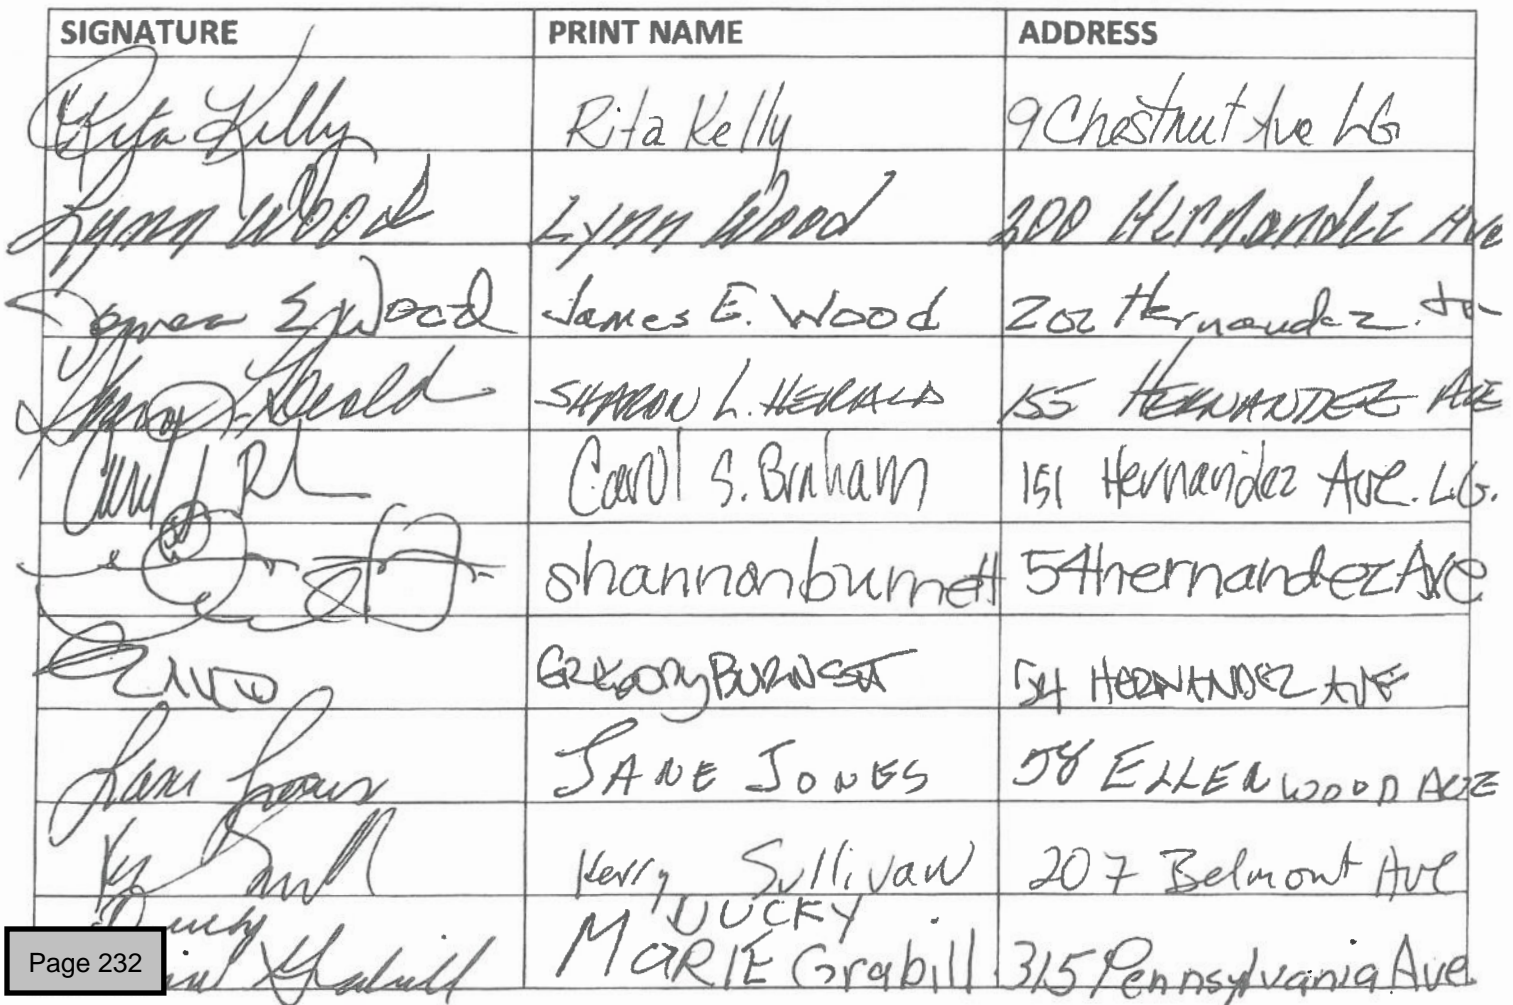 SIGNATURE PRINT NAME ADDRESS
Rita Kelly Rita Kelly 9 Chestnut Ave LG
Lynn Wood Lynn Wood 200 Hernandez Ave
James E. Wood James E. Wood 202 Hernandez
Sharon L. Herald SHARON L. HERALD 155 HERNANDEZ AVE
Carol S. 151 Hernandez Ave. L.G.
shannon burnett 54 hernandez Ave
GREGORY BURNETT 54 HERNANDEZ AVE
Jane Jones JANE JONES 58 ELLENWOOD AVE
Kerry Sullivan 207 Belmont Ave
Ducky DUCKY
Grabill MARIE Grabill 315 Pennsylvania Ave.
Page 232